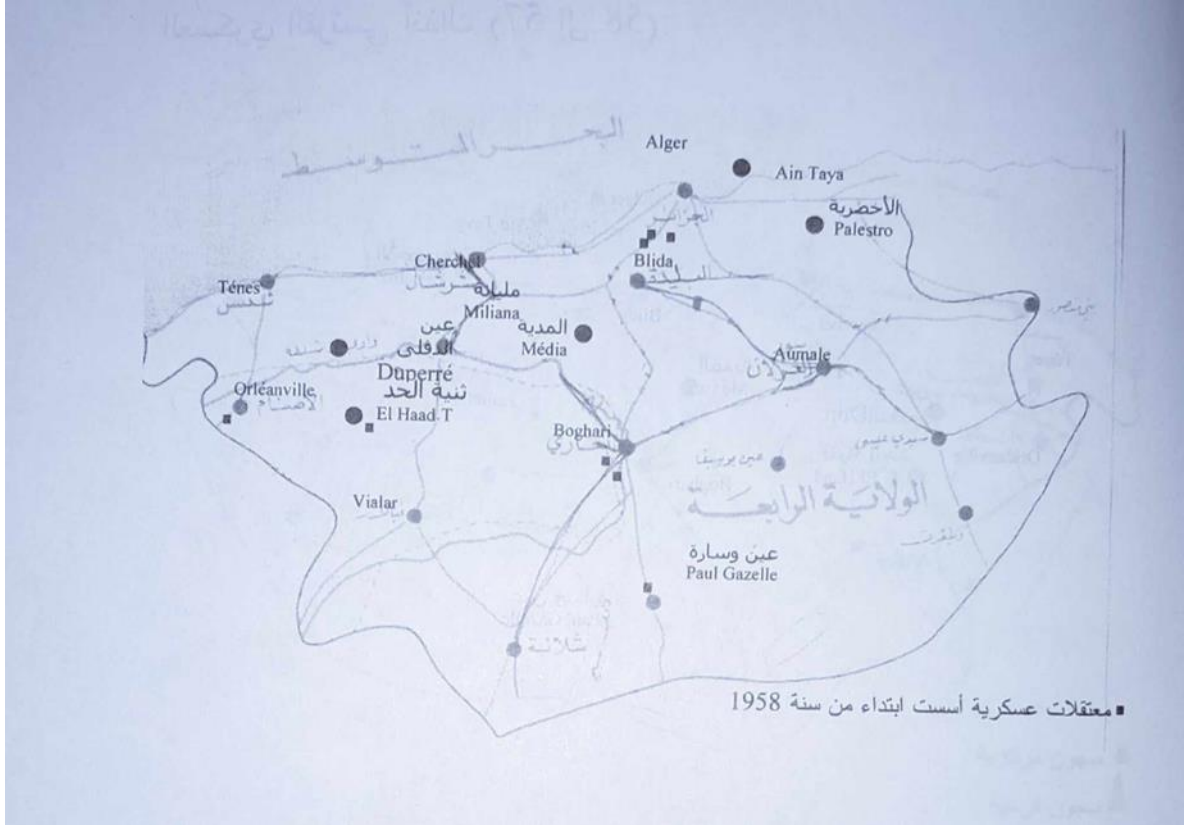 البحر المتوسط
Alger
Ain Taya
الجزائر
الأخضرية
Palestro
Cherchel
شرشال
Blida
البليدة
Ténes
تنس
مليانة
Miliana
عين
الدفلى
Duperré
المدية
Média
Aumale
سور
الغزلان
Orléanville
الأصنام
ثنية الحد
El Haad T
Boghari
سيدي عيسى
عين بوسيف
الولاية الرابعة
Vialar
عين وسارة
Paul Gazelle
شلالة
معتقلات عسكرية أسست ابتداء من سنة 1958